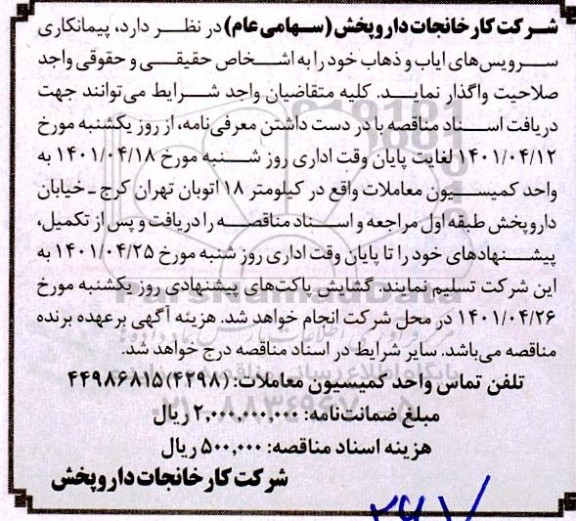 شرکت کارخانجات داروپخش (سهامی عام) در نظر دارد، پیمانکاری
سرویس‌های ایاب و ذهاب خود را به اشخاص حقیقی و حقوقی واجد
صلاحیت واگذار نماید. کلیه متقاضیان واجد شرایط می‌توانند جهت
دریافت اسناد مناقصه با در دست داشتن معرفی‌نامه، از روز یکشنبه مورخ
۱۴۰۱/۰۴/۱۲ لغایت پایان وقت اداری روز شنبه مورخ ۱۴۰۱/۰۴/۱۸ به
واحد کمیسیون معاملات واقع در کیلومتر ۱۸ اتوبان تهران کرج ـ خیابان
داروپخش طبقه اول مراجعه و اسناد مناقصه را دریافت و پس از تکمیل،
پیشنهادهای خود را تا پایان وقت اداری روز شنبه مورخ ۱۴۰۱/۰۴/۲۵ به
این شرکت تسلیم نمایند. گشایش پاکت‌های پیشنهادی روز یکشنبه مورخ
۱۴۰۱/۰۴/۲۶ در محل شرکت انجام خواهد شد. هزینه آگهی بر عهده برنده
مناقصه می‌باشد. سایر شرایط در اسناد مناقصه درج خواهد شد.
تلفن تماس واحد کمیسیون معاملات: (۴۲۹۸) ۴۴۹۸۶۸۱۵
مبلغ ضمانت‌نامه: ۲,۰۰۰,۰۰۰,۰۰۰ ریال
هزینه اسناد مناقصه: ۵۰۰,۰۰۰ ریال
شرکت کارخانجات داروپخش